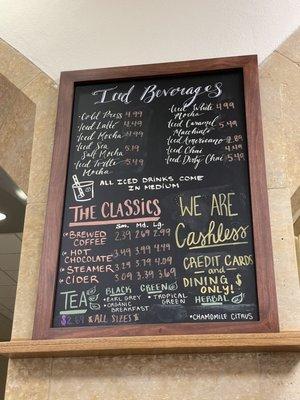 Iced Beverages
Cold Press 4.99
Iced Latte 4.49
Iced Mocha 4.99
Iced Sea Salt Mocha 5.19
Iced Turtle Mocha 5.49
Iced White Mocha 4.99
Iced Caramel Macchiato 5.49
Iced Americano
Iced Chai 4.49
Iced Dirty Chai 5.49
ALL ICED DRINKS COME
IN MEDIUM
THE CLASSICS
Sm. Md. Lg.
BREWED COFFEE 2.39 2.69 2.99
HOT CHOCOLATE 3.49 3.99 4.49
STEAMER 3.29 3.79 4.09
CIDER 3.09 3.39 3.69
TEA
$2.69 *ALL SIZES*
BLACK
• EARL GREY
• ORGANIC BREAKFAST
GREEN
• TROPICAL GREEN
HERBAL
• CHAMOMILE CITRUS
WE ARE
Cashless
CREDIT CARDS
and
DINING $
ONLY!